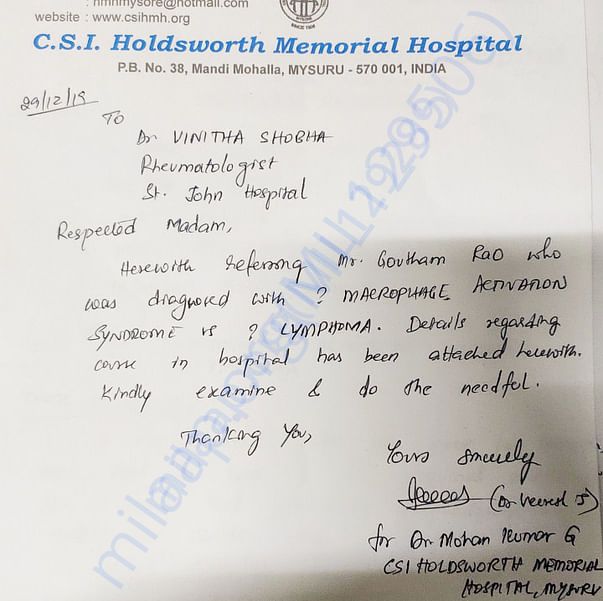 : hmhmysore@hotmail.com
website : www.csihmh.org
C.S.I. Holdsworth Memorial Hospital
P.B. No. 38, Mandi Mohalla, MYSURU - 570 001, INDIA
29/12/19
To
Dr VINITHA SHOBHA
Rheumatologist
St. John Hospital
Respected Madam,
Herewith referring Mr. Goutham Rao who
was diagnosed with ? MACROPHAGE ACTIVATION
SYNDROME vs ? LYMPHOMA. Details regarding
course in hospital has been attached herewith.
Kindly examine & do the needful.
Thanking You,
Yours sincerely
for Dr Mohan Kumar G
CSI HOLDSWORTH MEMORIAL
HOSPITAL, MYSURU